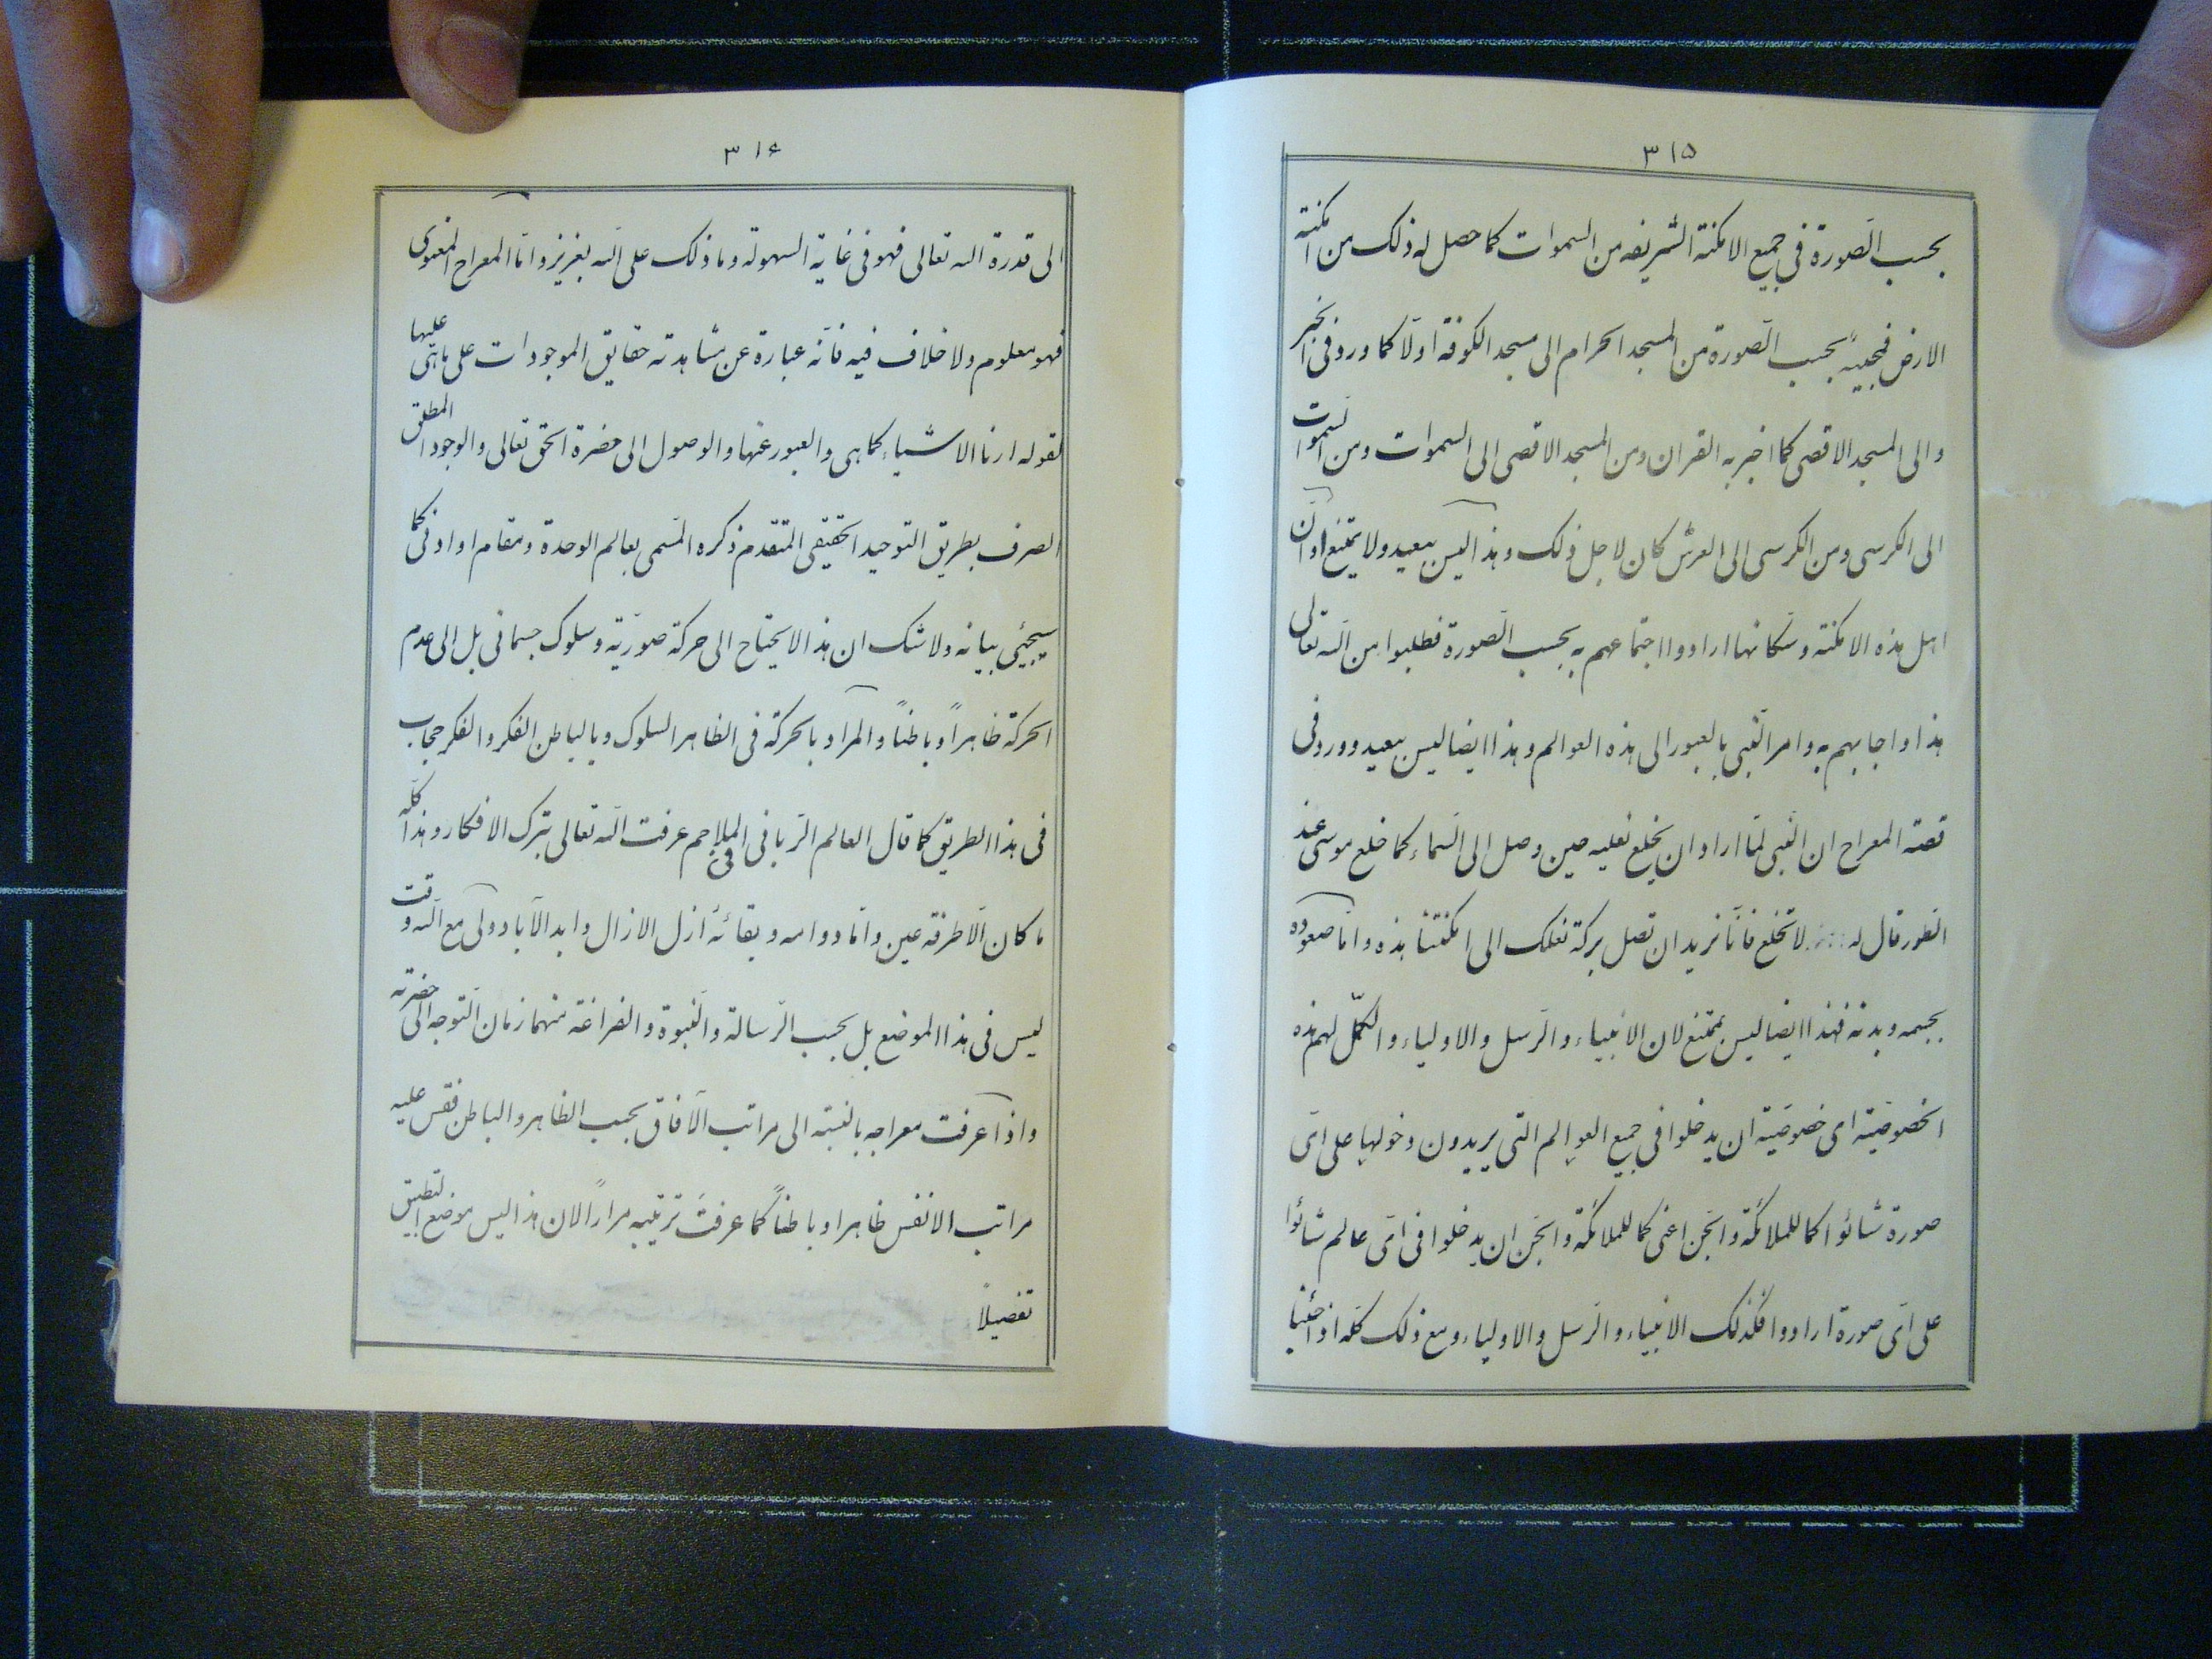 ٣١۵
بحسب الصّورة فى جميع الامكنة الشريفه من السموات كما حصل له ذلك من امكنة
الارض فمجيئه بحسب الصّورة من المسجد الحرام الى مسجد الكوفة اولاً كما ورد فى الخبر
والى المسجد الاقصى كما اخبر به القران ومن المسجد الاقصى الى السموات ومن السّموات
الى الكرسى ومن الكرسى الى العرش كان لاجل ذلك وهذا ليس ببعيد ولا يمتنع اوانّ
اهل هذه الامكنة وسكانها ارادوا اجتماعهم به بحسب الصّورة فطلبوا من اللّه تعالى
هذا واجابهم به وامر النّبى بالعبور الى هذه العوالم وهذا ايضا ليس ببعيد وورد فى
قصة المعراج ان النّبى لمّا اراد ان يخلع نعليه حين وصل الى السّماء كما خلع موسى عند
الطّور قال له لا تخلع فانّا نريد ان تصل بركة نعلك الى امكنتنا هذه وامّا صعوده
بجسمه وبدنه فهذا ايضا ليس بممتنع لان الانبياء والرّسل والاولياء والكمّل لهم هذه
الخصوصّية اى خصوصّية ان يدخلوا فى جميع العوالم التى يريدون دخولها على اىّ
صورة شائوا كما للملائكة والجّن اعنى كما للملائكة والجّن ان يدخلوا فى اىّ عالم شائوا
على اىّ صورة ارادوا فكذلك الانبياء والرّسل والاولياء ومع ذلك كلّه اذا جئنا
٣١۶
الى قدرة الله تعالى فهو فى غاية السهولة وما ذلك على اللّه بعزيز وامّا المعراج المعنوى
فهو معلوم ولا خلاف فيه فانّه عبارة عن مشاهدته حقايق الموجودات على ماهى عليها
لقوله ارنا الاشياء كما هى والعبور عنها والوصول الى حضرة الحق تعالى والوجود المطلق
الصرف بطريق التوحيد الحقيقى المتقدم ذكره المسّمى بعالم الوحدة ومقام او ادنى كما
سيجيئى بيانه ولا شك ان هذا لا يحتاج الى حركة صورّية وسلوك جسمانى بل الى عدم
الحركة ظاهراً وباطناً والمراد بالحركة فى الظاهر السلوك وبالباطن الفكر والفكر حجاب
فى هذا الطريق كما قال العالم الرّبانى فى الملاحم عرفت اللّه تعالى بترك الافكار وهذا كلّه
ما كان الّا طرفة عين وامّا دوامه وبقائه أزل الازال وابد الآباد ولى مع اللّه وقت
ليس فى هذا الموضع بل بحسب الرّسالة والنّبوة والفراغة منهما زمان التّوجه الى حضرته
واذا عرفت معراجه بالنسبة الى مراتب الآفاق بحسب الظاهر والباطن فقس عليه
مراتب الانفس ظاهرا وباطناً كما عرفتَ ترتيبه مراراً لان هذا ليس موضع التطبيق
تفصيلاً